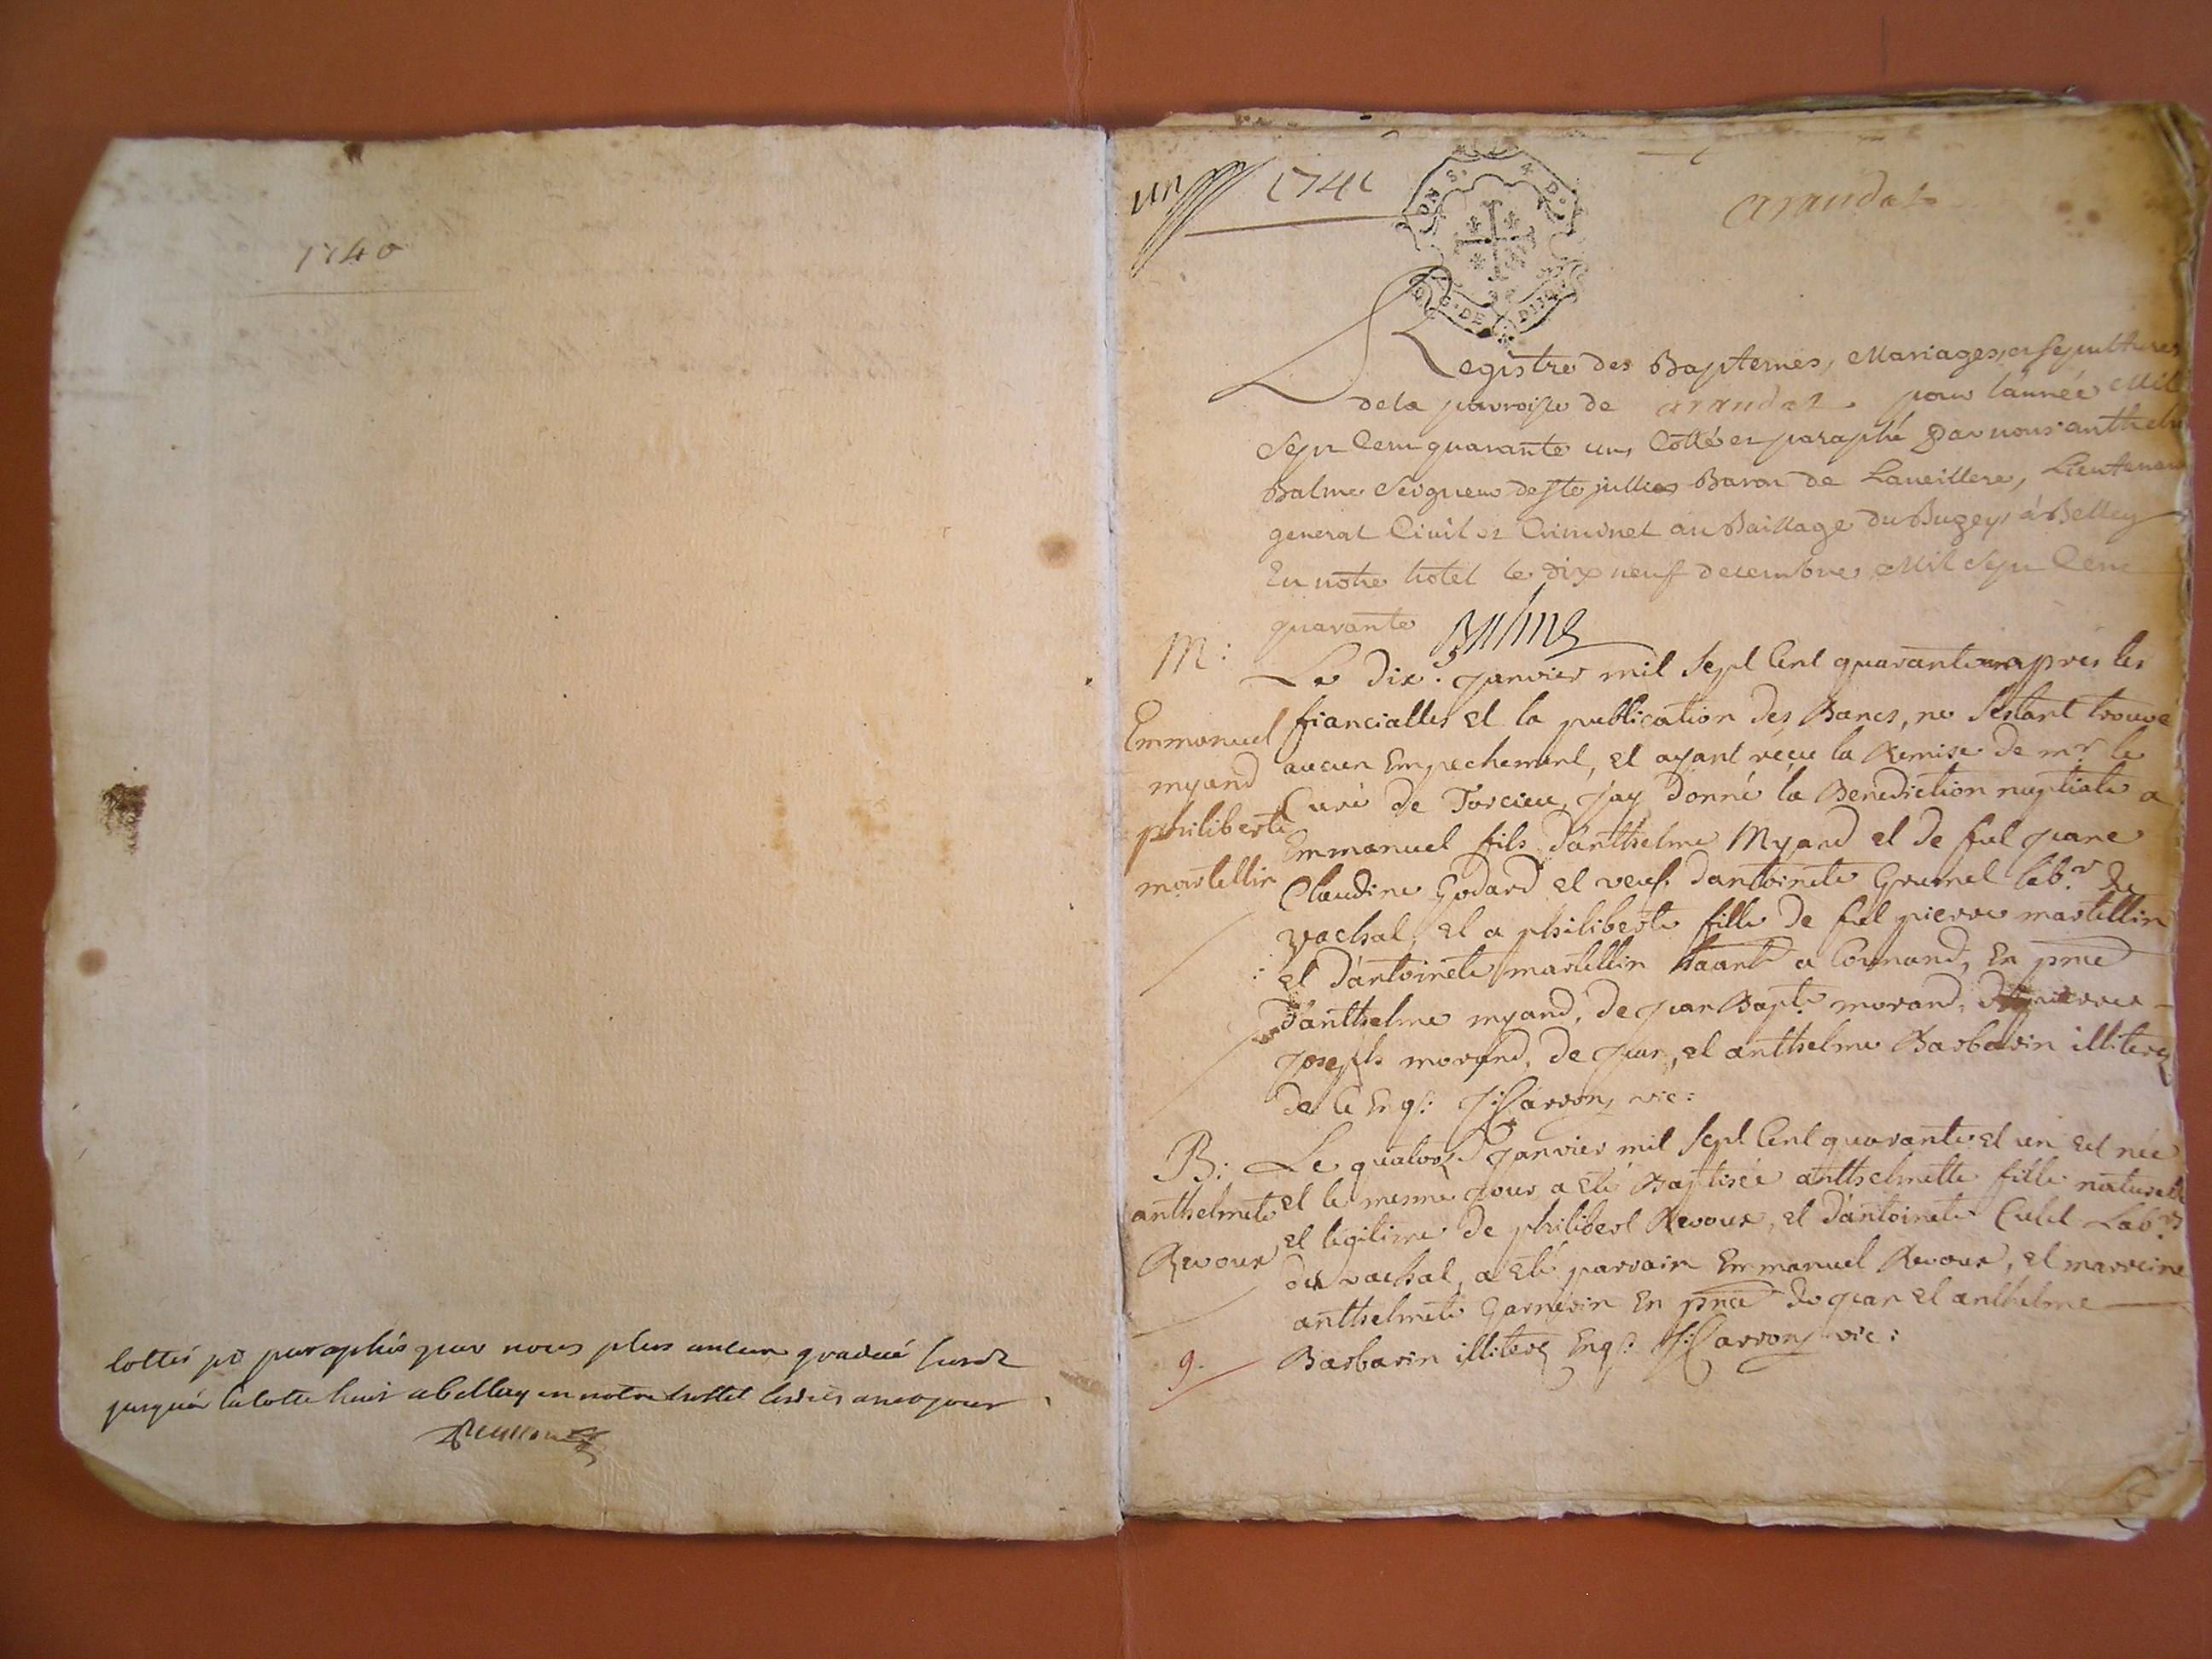 1740
Cottés et paraphés par nous plus ancien gradué
jusqu'a la cotte huit a belley en notre hostel lesdits an et jour
un
1741
arandas
Registre des Baptemes, Mariages, et sepultures
de la parroisse de arandas pour l'année Mil
Sept Cent quarante un, Cotté et paraphé Par nous anthelme
Balme Seigneur de Ste jullie Baron de Laveillere, Lieutenant
general Civil et Criminel au Baillage du Bugey, à Belley
En notre hotel le dix neuf decembre Mil Sept Cent
quarante Balme
M:
Emmanuel
myand
philiberte
martellin
Le dix janvier mil sept cent quarante un apres les
fiancialles et la publication des Bancs, ne s'estant trouvé
aucun Empechement, et ayant reçu la Remise de mr. le
Curé de Torcieu, jay donné la Benediction nuptiale a
Emmanuel fils d'anthelme Myand et de fut jeane
Claudine Godard et veuf d'antoinete Grumel labr. de
vachat, et a philiberte fille de fut pierre martellin
et d'antoinete martellin a Connand, En pnce
d'anthelme myand, de jean Bapt. morand,
joseph morand, de jean, et anthelme Barbarin illiterez
de ce Enqs: J: Carron, vic:
B:
anthelmete
Revoux
Le quatorze janvier mil sept cent quarante et un est née
et le meme jour a eté Baptisée anthelmette fille naturelle
et legitime de philibert Revoux, et d'antoinete Culet Labrs
du vachat, a eté parrain Emmanuel Revoux, et marreine
anthelmete Garnerin En pnce de jean et anthelme
Barbarin illiterez Enqs: J: Carron vic:
9.